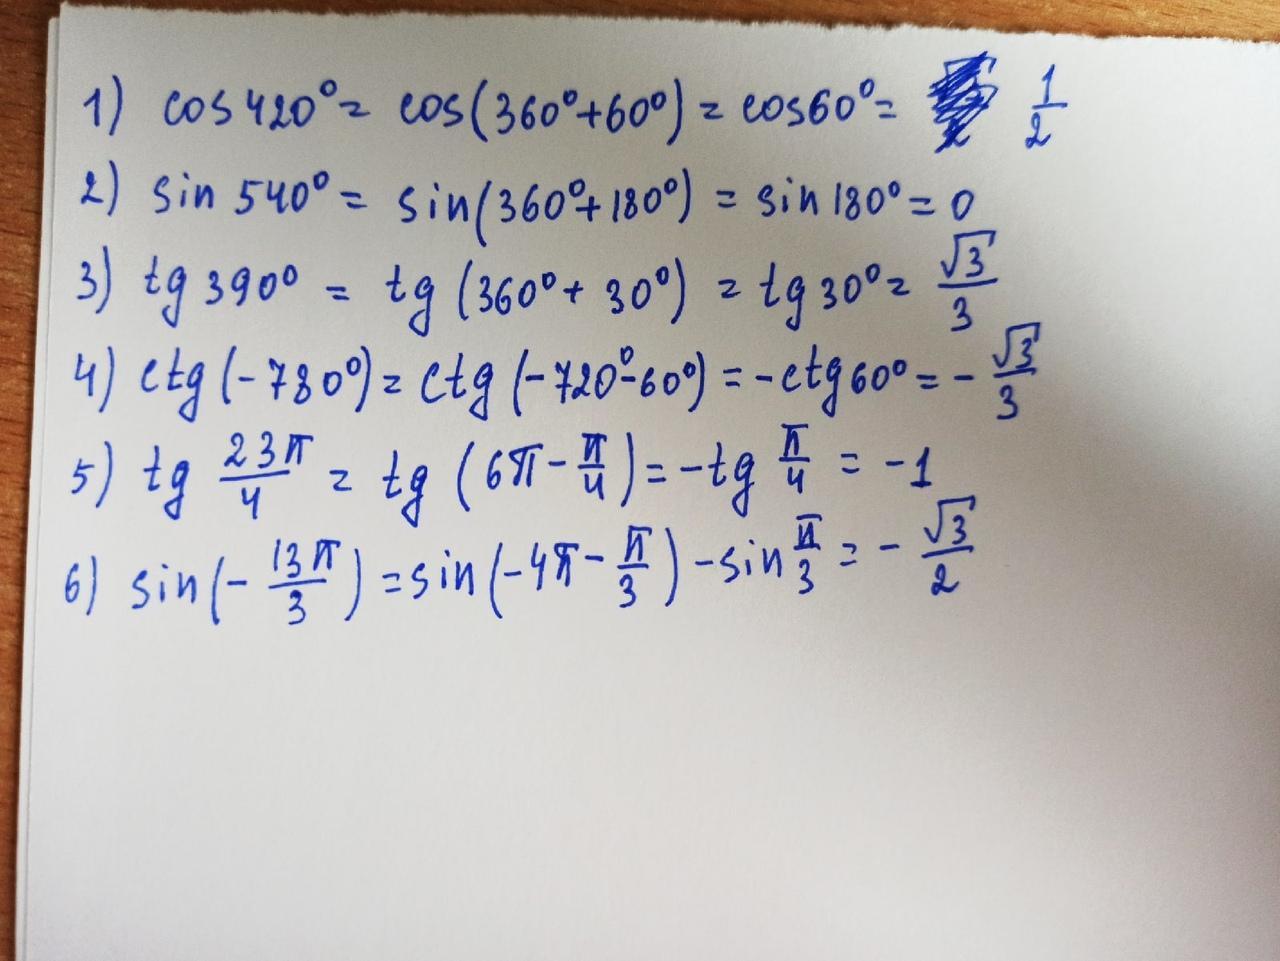 1) cos 420° = cos(360°+60°) = cos60° = 1/2
2) sin 540° = sin(360°+180°) = sin 180° = 0
3) tg 390° = tg (360°+ 30°) = tg 30° = √3/3
4) ctg (-780°) = ctg (-720°-60°) = -ctg 60° = - √3/3
5) tg 23π/4 = tg (6π - π/4) = -tg π/4 = -1
6) sin(- 13π/3) = sin(-4π - π/3) - sin π/3 = - √3/2